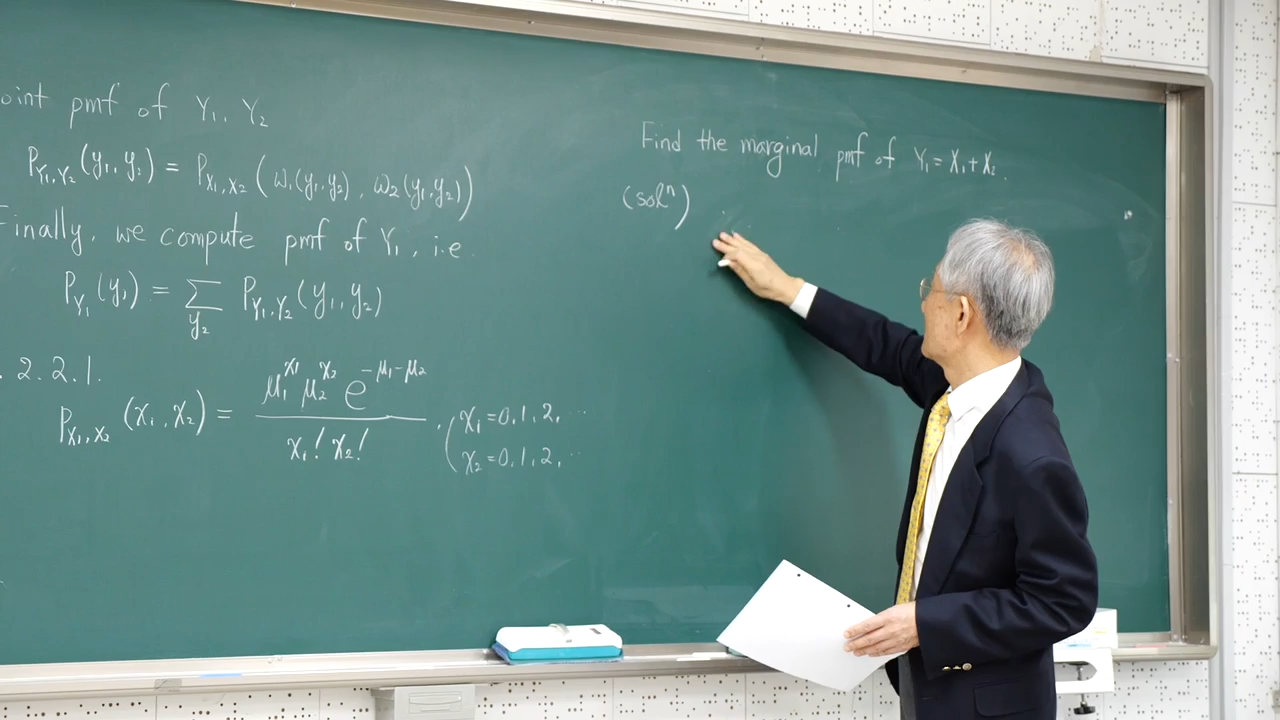 oint pmf of Y₁, Y₂
P_{Y₁,Y₂}(y₁,y₂) = P_{X₁,X₂}(ω₁(y₁,y₂), ω₂(y₁,y₂))
Finally, we compute pmf of Y₁, i.e.
P_{Y₁}(y₁) = Σ_{y₂} P_{Y₁,Y₂}(y₁,y₂)
. 2.2.1.
P_{X₁,X₂}(x₁,x₂) = μ₁^{x₁} μ₂^{x₂} e^{-μ₁-μ₂} / x₁! x₂! , ( x₁=0,1,2,⋯
x₂=0,1,2,⋯
Find the marginal pmf of Y₁=X₁+X₂.
(solⁿ)